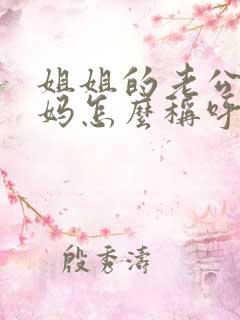 姐姐的老公
妈怎麼稱呼
殷秀濤